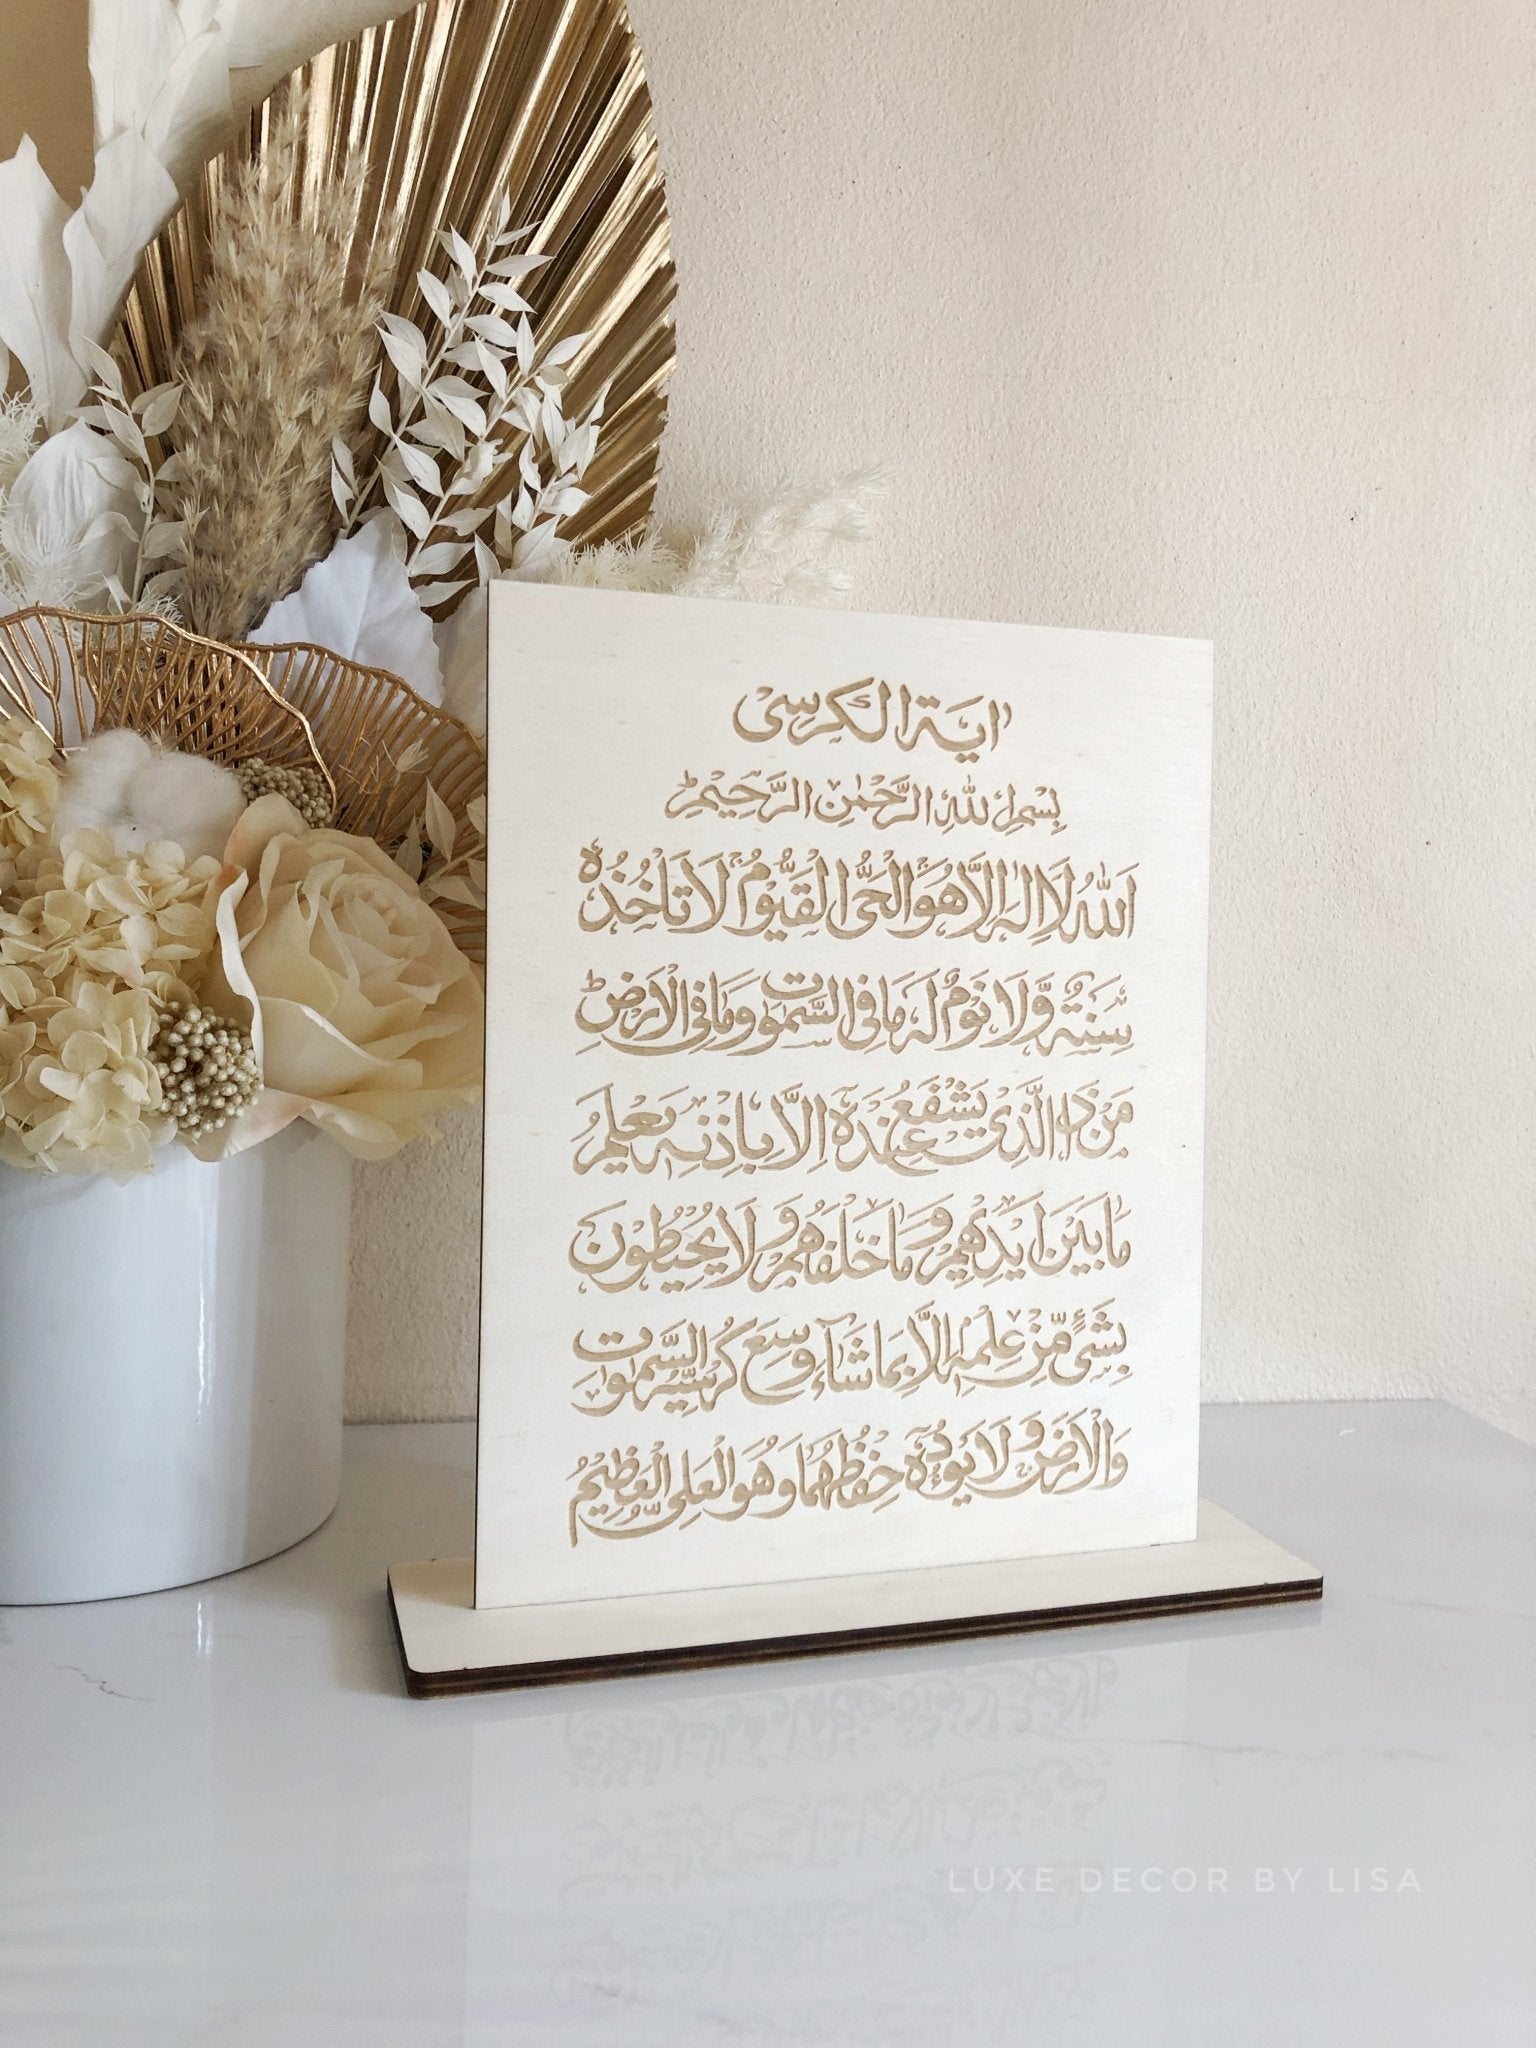 اٰية الكرسى
بِسْمِ اللهِ الرَّحْمٰنِ الرَّحِيْمِ
اَللهُ لَا اِلٰهَ اِلَّا هُوَ اَلْحَىُّ الْقَيُّوْمُ لَا تَاْخُذُهٗ
سِنَةٌ وَّلَا نَوْمٌ لَهٗ مَا فِى السَّمٰوٰتِ وَمَا فِى الْاَرْضِ
مَنْ ذَا الَّذِىْ يَشْفَعُ عِنْدَهٗٓ اِلَّا بِاِذْنِهٖ يَعْلَمُ
مَا بَيْنَ اَيْدِيْهِمْ وَمَا خَلْفَهُمْ وَلَا يُحِيْطُوْنَ
بِشَىْءٍ مِّنْ عِلْمِهٖٓ اِلَّا بِمَا شَآءَ وَسِعَ كُرْسِيُّهُ السَّمٰوٰتِ
وَالْاَرْضَ وَلَا يَـُٔوْدُهٗ حِفْظُهُمَا وَهُوَ الْعَلِىُّ الْعَظِيْمُ
LUXE DECOR BY LISA